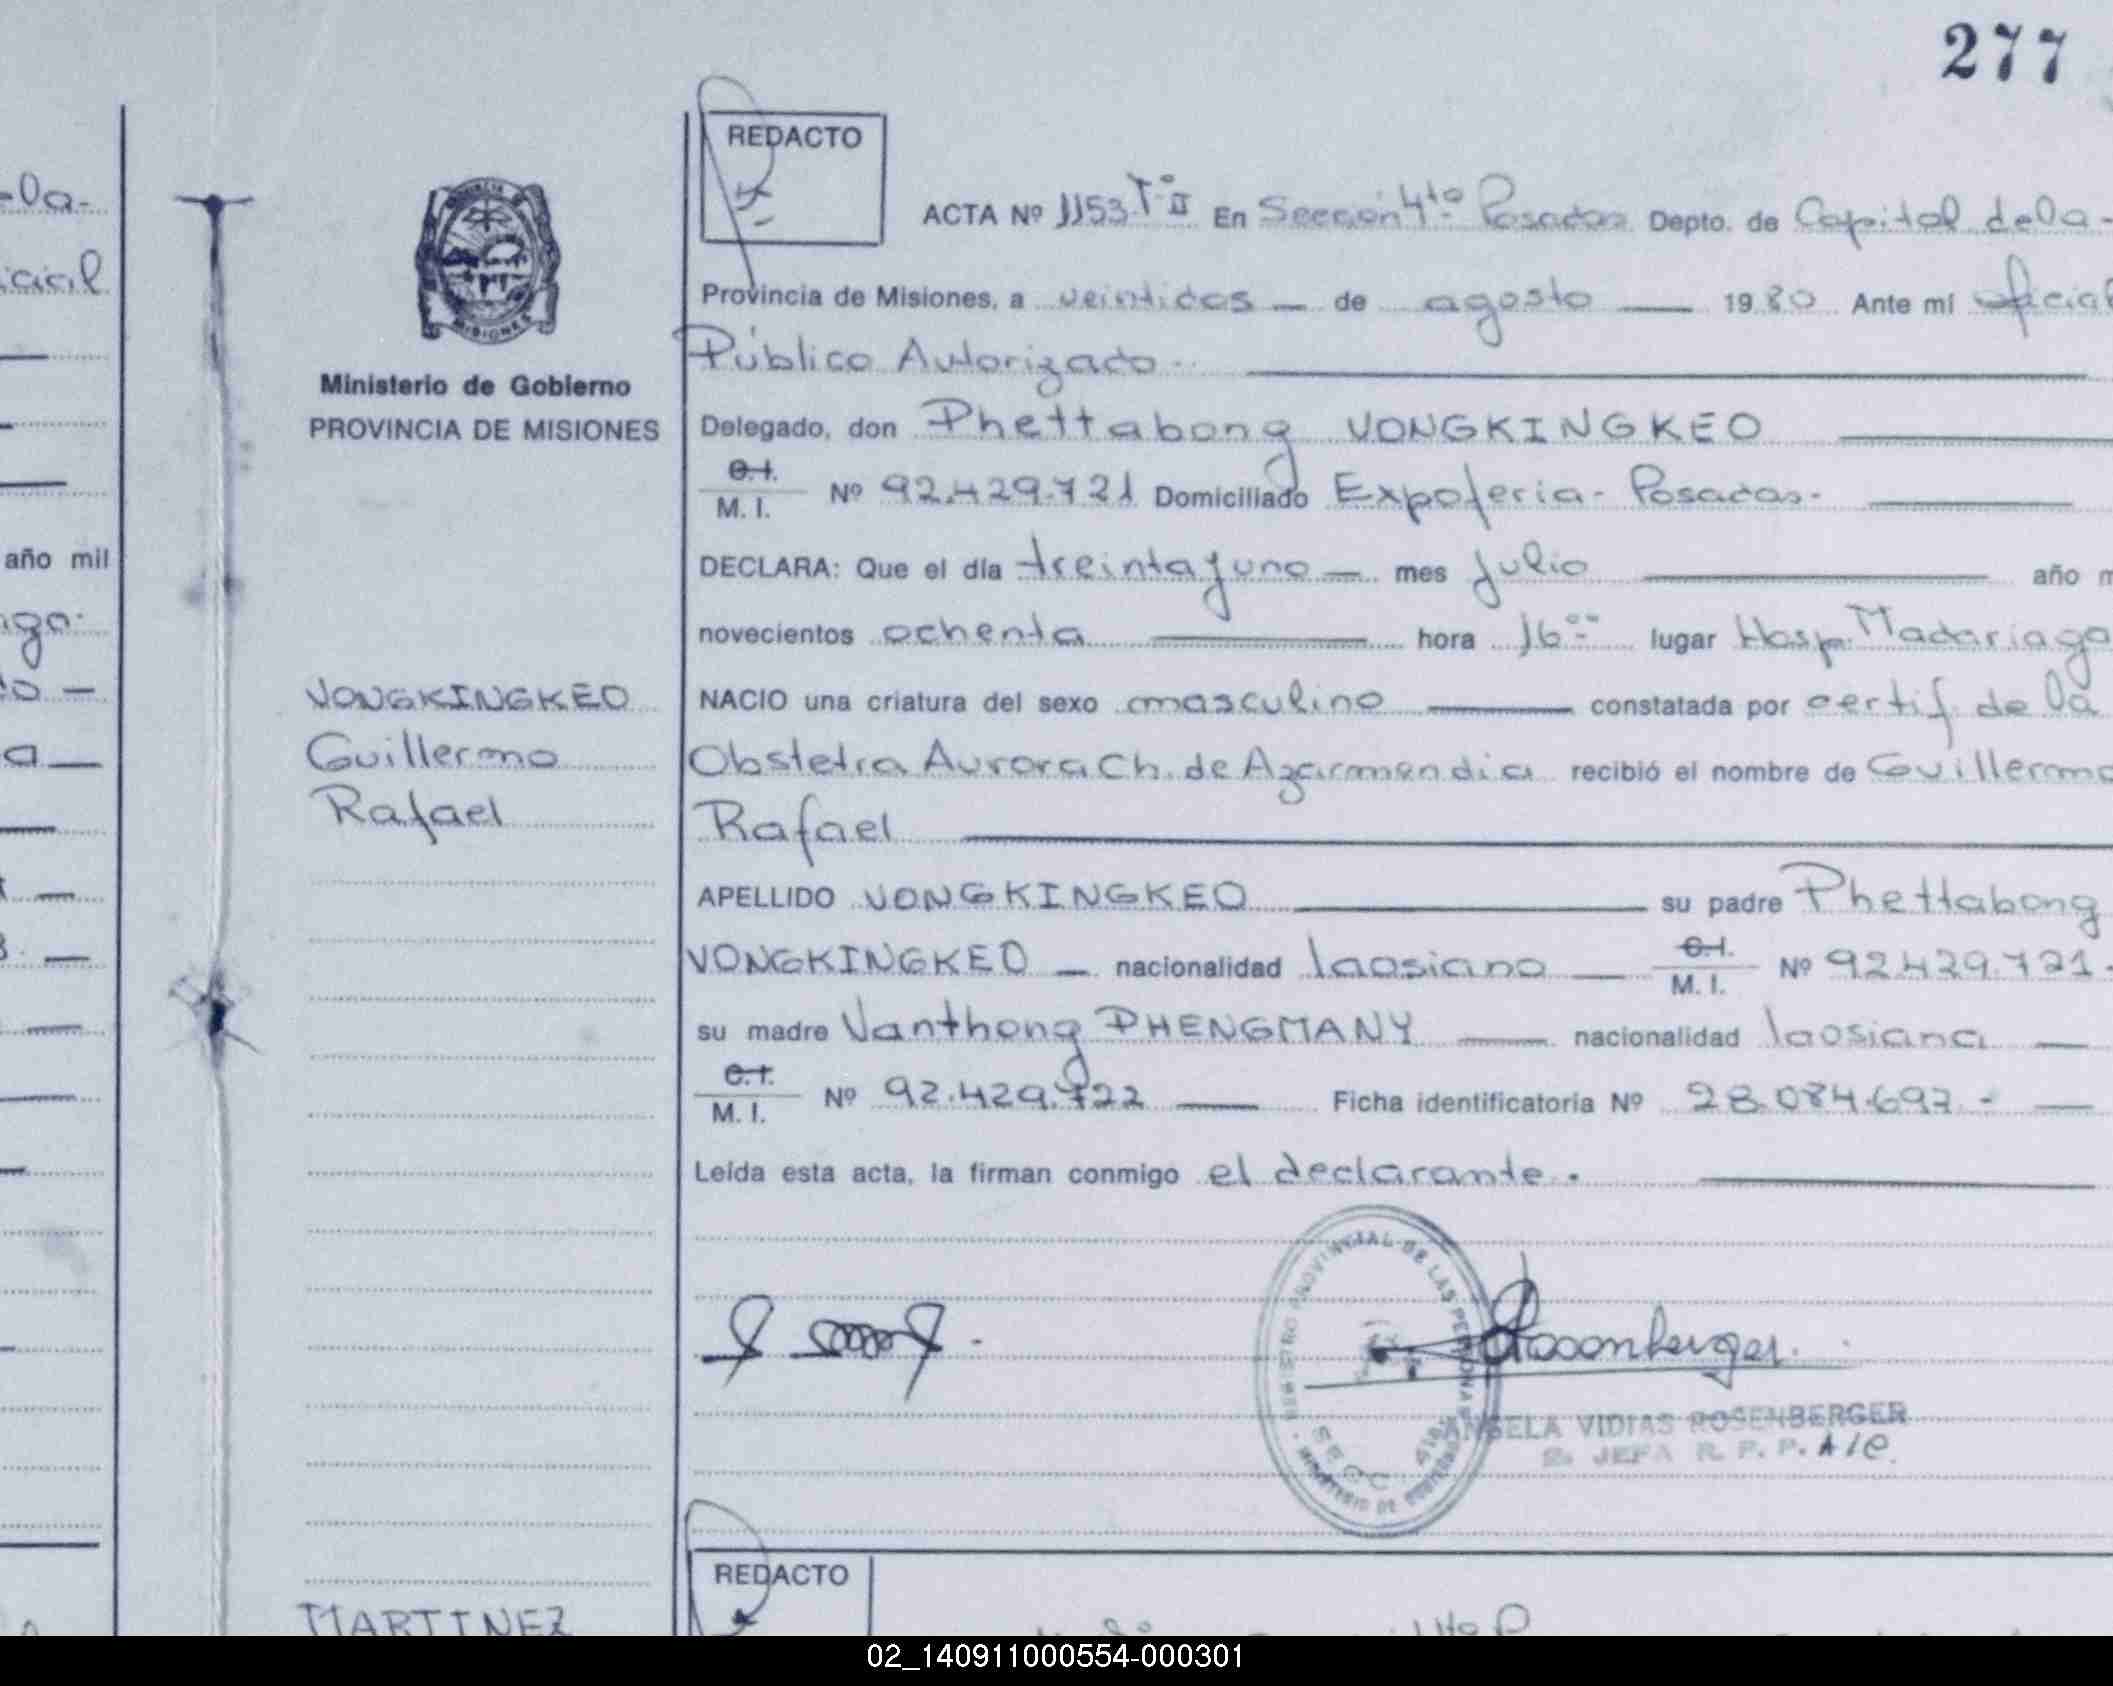 277
REDACTO
ACTA Nº 1153 Tº II En Sección 4to Posadas Depto. de Capital de la -
Provincia de Misiones, a veintidos — de agosto — 1980 Ante mí oficial
Público Autorizado
Ministerio de Gobierno
PROVINCIA DE MISIONES
Delegado, don Phettabong VONGKINGKEO
C.I.
M. I. Nº 92.429.721 Domiciliado Expoferia - Posadas.-
DECLARA: Que el día treinta y uno — mes julio — año m
novecientos ochenta — hora 16 lugar Hosp. Madariaga
NACIO una criatura del sexo masculino — constatada por certif. de la
Obstetra Aurora Ch. de Azarmendia recibió el nombre de Guillermo
Rafael
VONGKINGKEO
Guillermo
Rafael
APELLIDO VONGKINGKEO — su padre Phettabong
VONGKINGKEO — nacionalidad laosiano — C.I. M. I. Nº 92.429.721.
su madre Vanthong PHENGMANY — nacionalidad laosiana —
C.I.
M. I. Nº 92.429.722 — Ficha identificatoria Nº 28.084.697.- —
Leída esta acta, la firman conmigo el declarante.
REGISTRO PROVINCIAL DE LAS PERSONAS
SECC 4ta
MINISTERIO DE GOBIERNO
Rosenberger
ANGELA VIDIAS ROSENBERGER
JEFA R. P. P. A/C.
REDACTO
MARTINEZ
-la-
icial
año mil
02_140911000554-000301